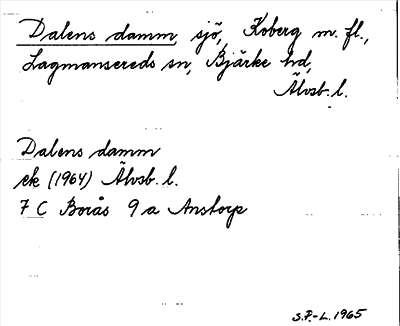 Dalens damm, sjö, Koberg m. fl.,
Lagmansereds sn, Bjärke hd,
Älvsb. l.
Dalens damm
ek (1964) Älvsb. l.
7 C Borås 9 a Anstorp
S.P.-L. 1965